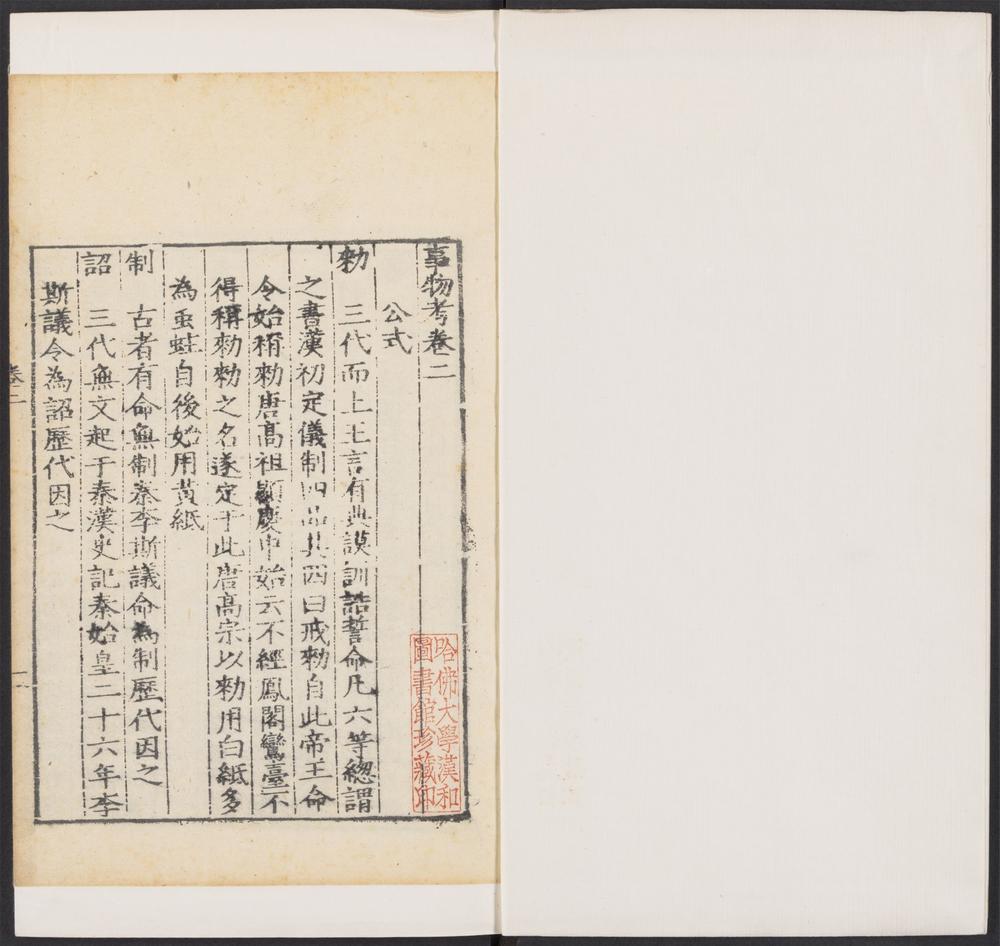 事物考卷二
公式
勑 三代而上王言有典謨訓誥誓命凡六等緫謂
之書漢初定儀制四品其四曰戒勑自此帝王命
令始稱勑唐髙祖顯慶中始云不經鳳閣鸞臺不
得稱勑勑之名遂定于此唐髙宗以勑用白紙多
為䖝蛀自後始用黄紙
制 古者有命無制秦李斯議命為制歷代因之
詔 三代無文起于秦漢史記秦始皇二十六年李
斯議令為詔歷代因之
卷二
一
哈佛大學漢和
圖書館珍藏印